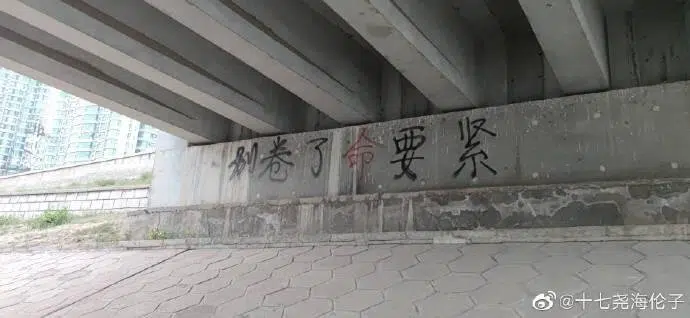 别卷了命要紧
@十七尧海伦子